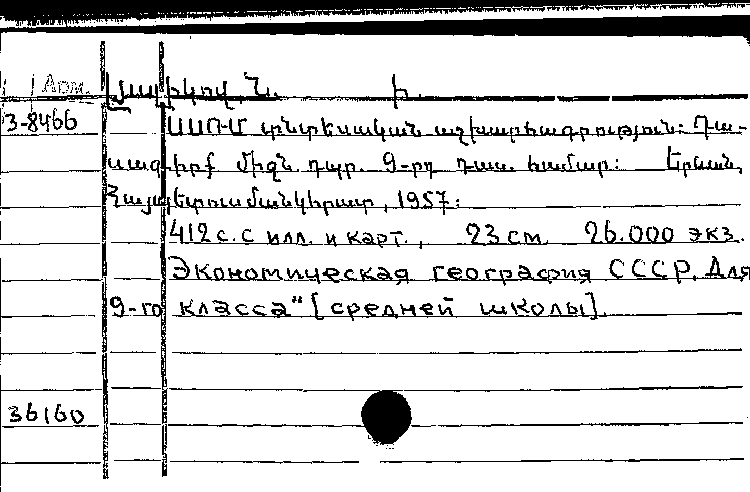 Арм. Լյալիկով, Ն. Ի.
3-8466 ՍՍՌՄ տնտեսական աշխարհագրություն: Դա-
սագիրք միջն. դպր. 9-րդ դաս. համար: Երևան,
Հայպետուսմանկհրատ, 1957:
412 с. с илл. и карт., 23 см. 26.000 экз.
Экономическая география СССР. Для
9-го класса" [средней школы].
36160